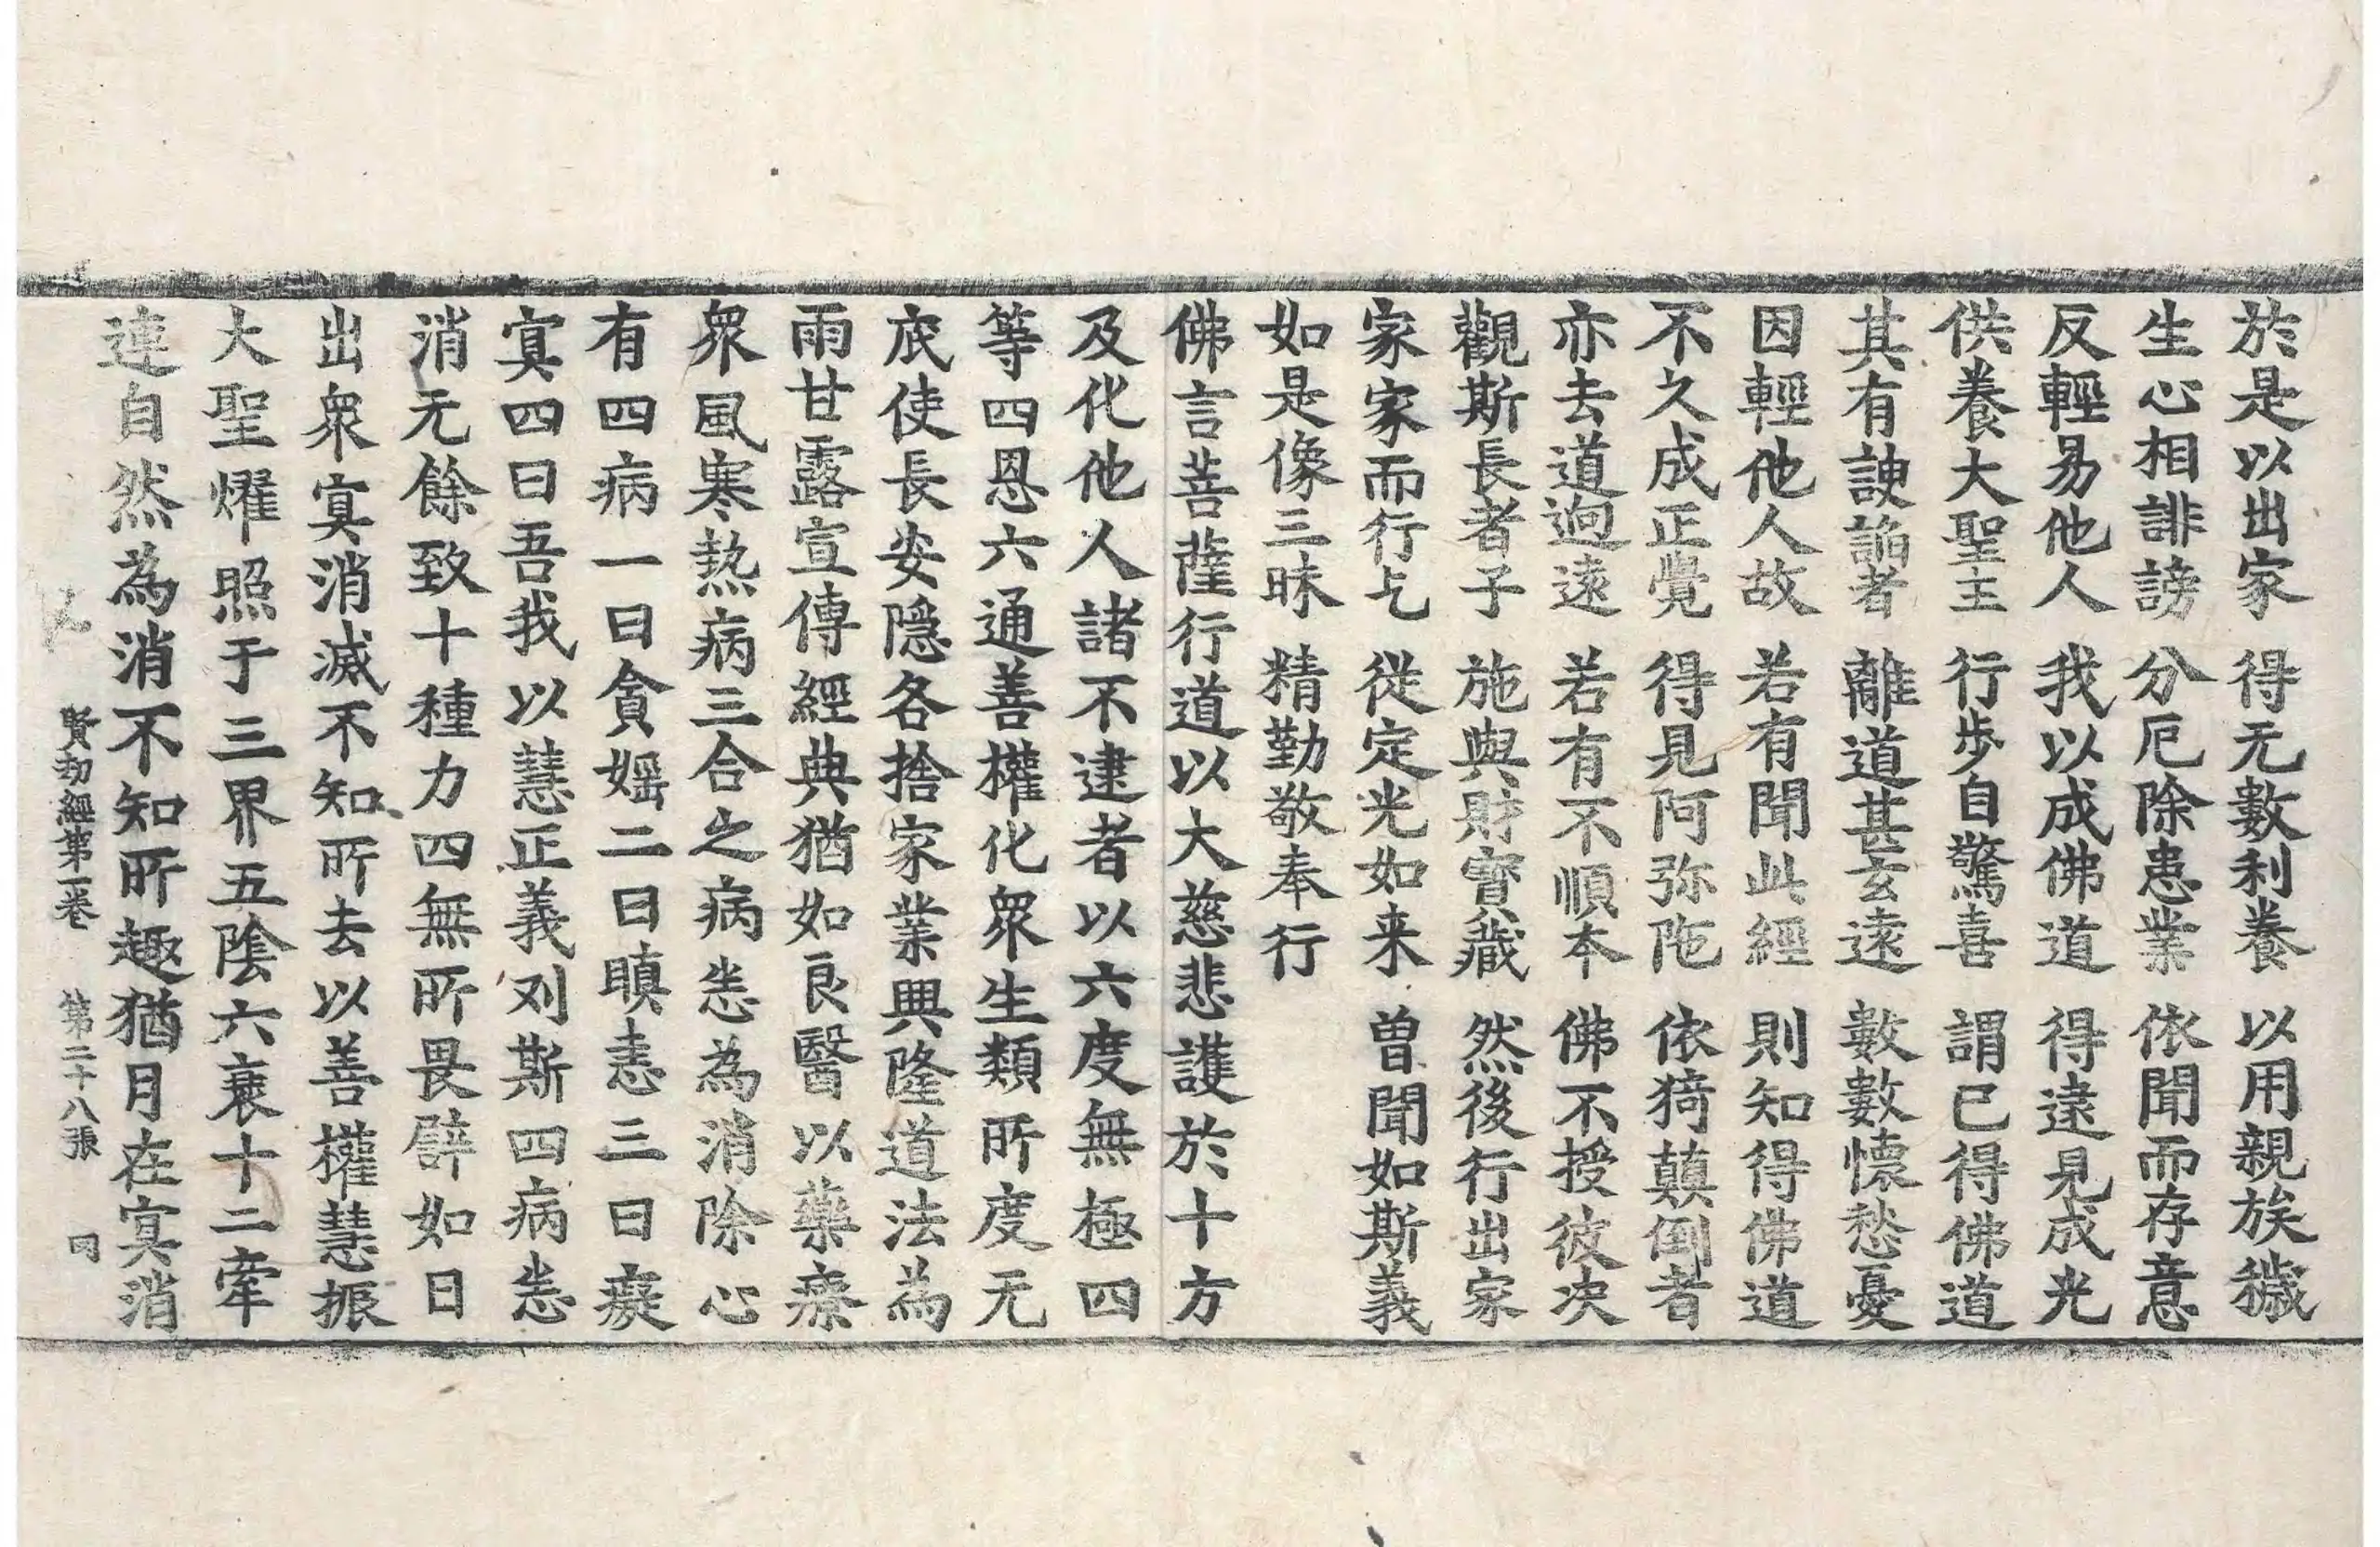 於是以出家　得无數利養　以用親族穢
生心相誹謗　分厄除患業　依聞而存意
反輕易他人　我以成佛道　得逮見成光
供養大聖主　行步自驚喜　謂已得佛道
其有諛諂者　離道甚玄遠　數數懷愁憂
因輕他人故　若有聞此經　則知得佛道
不久成正覺　得見阿弥陁　依猗顛倒者
亦去道逈遠　若有不順本　佛不授彼决
觀斯長者子　施與財寶藏　然後行出家
家家而行乞　從定光如来　曽聞如斯義
如是像三昧　精勤敬奉行
佛言菩薩行道以大慈悲護於十方
及化他人諸不逮者以六度無極四
等四恩六通善權化衆生類所度无
底使長安隱各捨家業興隆道法為
雨甘露宣傳經典猶如良醫以藥療
衆風寒熱病三合之病恙為消除心
有四病一曰貪婬二曰瞋恚三曰癡
寘四曰吾我以慧正義刈斯四病恙
消无餘致十種力四無所畏譬如日
出衆寘消滅不知所去以善權慧振
大聖燿照于三界五陰六衰十二牽
連自然為消不知所趣猶月在寘消
賢劫經第一卷　第二十八張　同